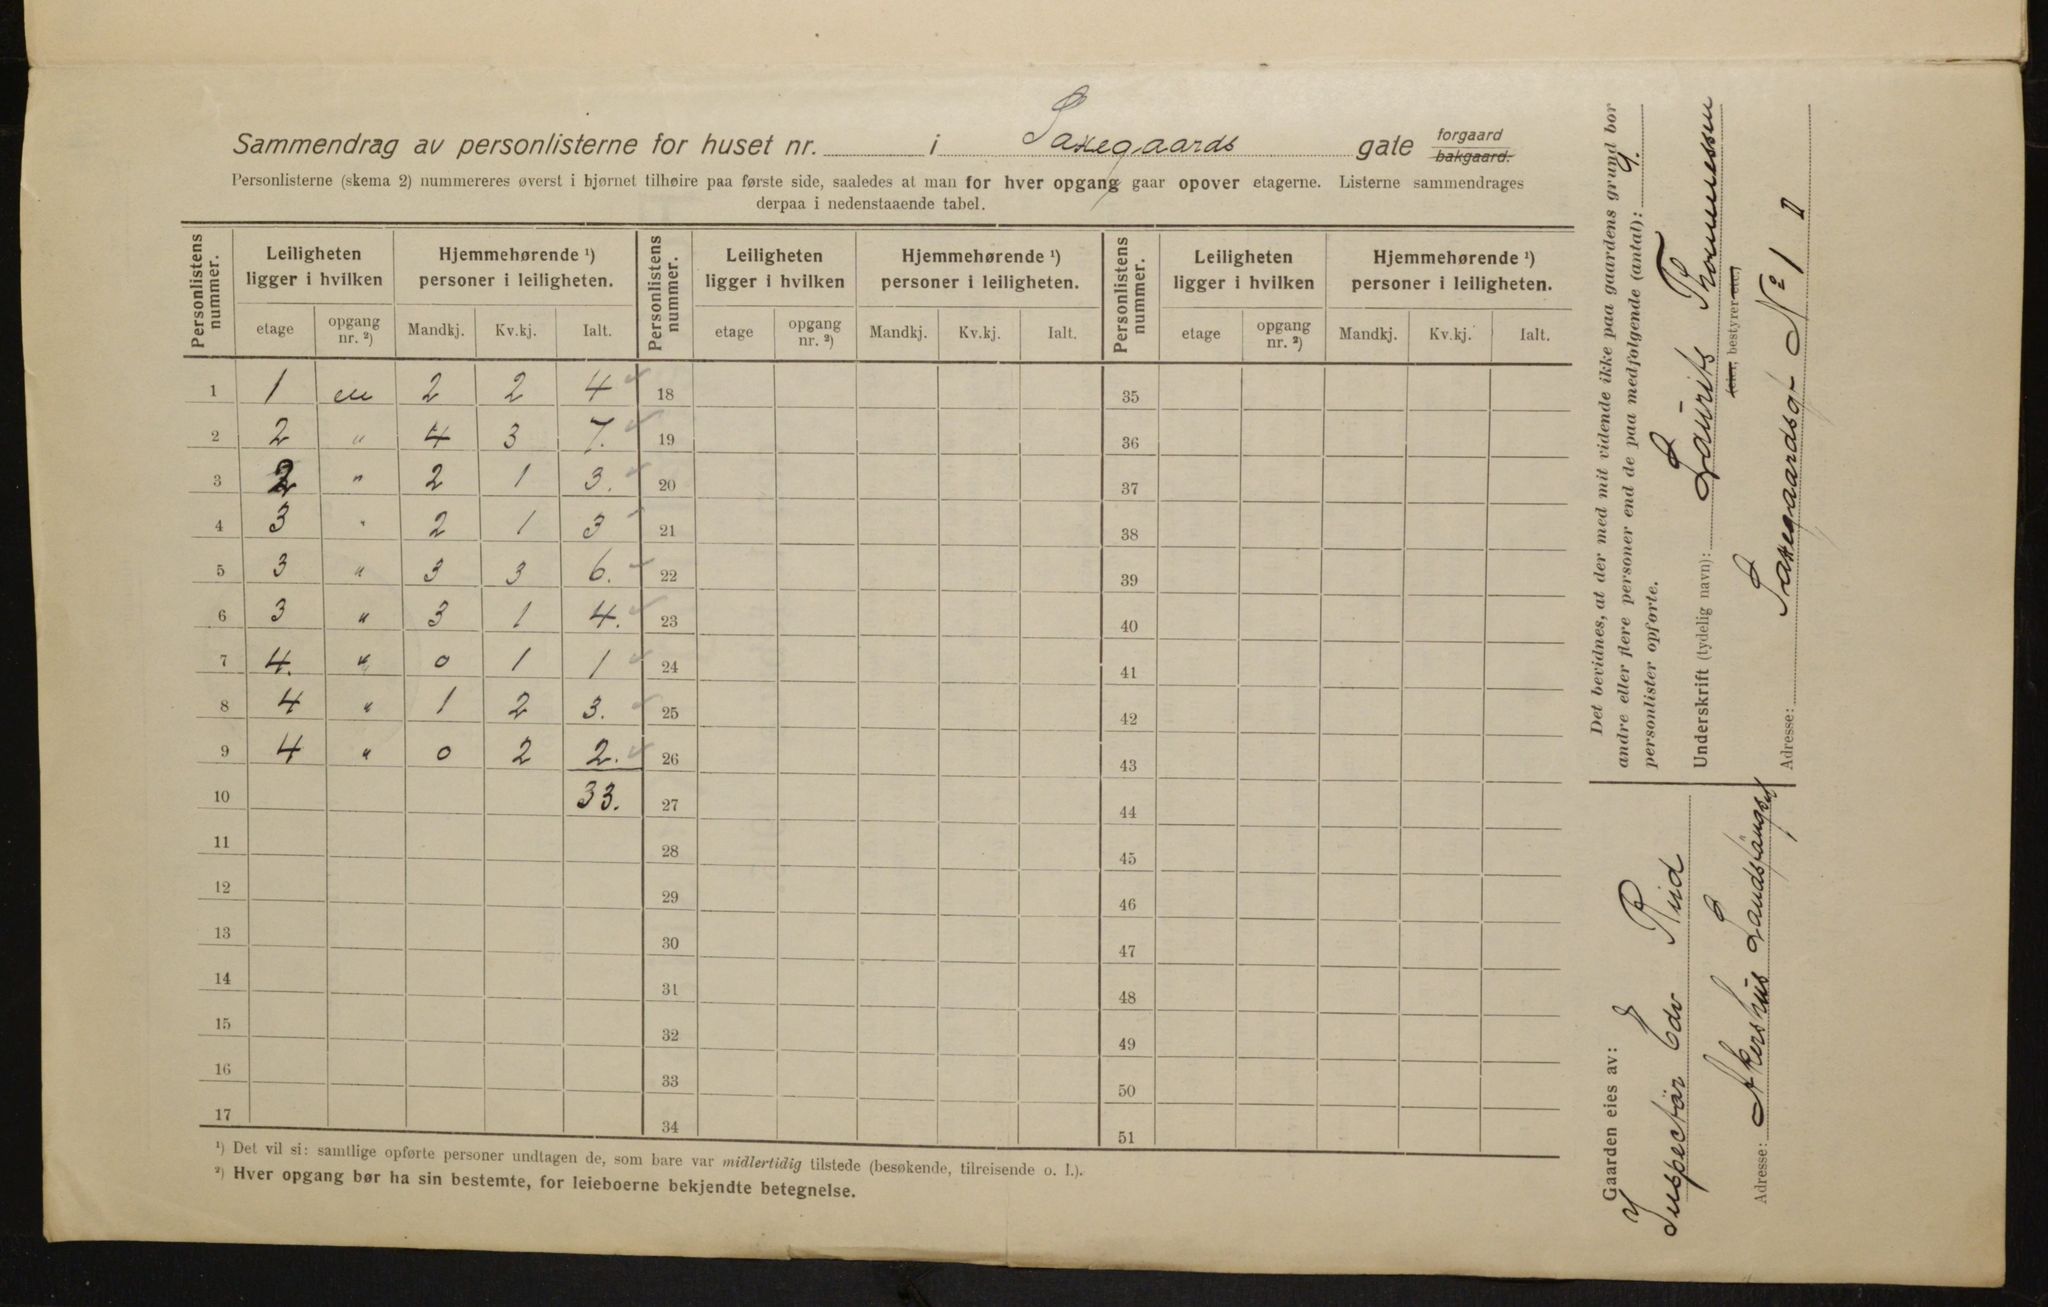 Sammendrag av personlisterne for huset nr. i Saxegaards gate forgaard bakgaard.
Personlisterne (skema 2) nummereres øverst i hjørnet tilhøire paa første side, saaledes at man for hver opgang gaar opover etagerne. Listerne sammendrages
derpaa i nedenstaaende tabel.
Personlistens nummer. Leiligheten ligger i hvilken Hjemmehørende ¹) personer i leiligheten. Personlistens nummer. Leiligheten ligger i hvilken Hjemmehørende ¹) personer i leiligheten. Personlistens nummer. Leiligheten ligger i hvilken Hjemmehørende ¹) personer i leiligheten.
etage opgang nr. ²) Mandkj. Kv.kj. Ialt. etage opgang nr. ²) Mandkj. Kv.kj. Ialt. etage opgang nr. ²) Mandkj. Kv.kj. Ialt.
1 1 en 2 2 4 ✓ 18 35
2 2 " 4 3 7. ✓ 19 36
3 2 " 2 1 3. ✓ 20 37
4 3 " 2 1 3 ✓ 21 38
5 3 " 3 3 6. ✓ 22 39
6 3 " 3 1 4. ✓ 23 40
7 4. " 0 1 1 ✓ 24 41
8 4 " 1 2 3. ✓ 25 42
9 4 " 0 2 2. ✓ 26 43
10 33. 27 44
11 28 45
12 29 46
13 30 47
14 31 48
15 32 49
16 33 50
17 34 51
¹) Det vil si: samtlige opførte personer undtagen de, som bare var midlertidig tilstede (besøkende, tilreisende o. l.).
²) Hver opgang bør ha sin bestemte, for leieboerne bekjendte betegnelse.
Det bevidnes, at der med mit vidende ikke paa gaardens grund bor
andre eller flere personer end de paa medfølgende (antal): 9.
personlister opførte.
Underskrift (tydelig navn): Laurits Thomuessen
(eier, bestyrer etc.)
Adresse: Saxegaardsg- № 1 II
Gaarden eies av:
Inspektør Edv Rud
Adresse: Akershus Landsfängsel